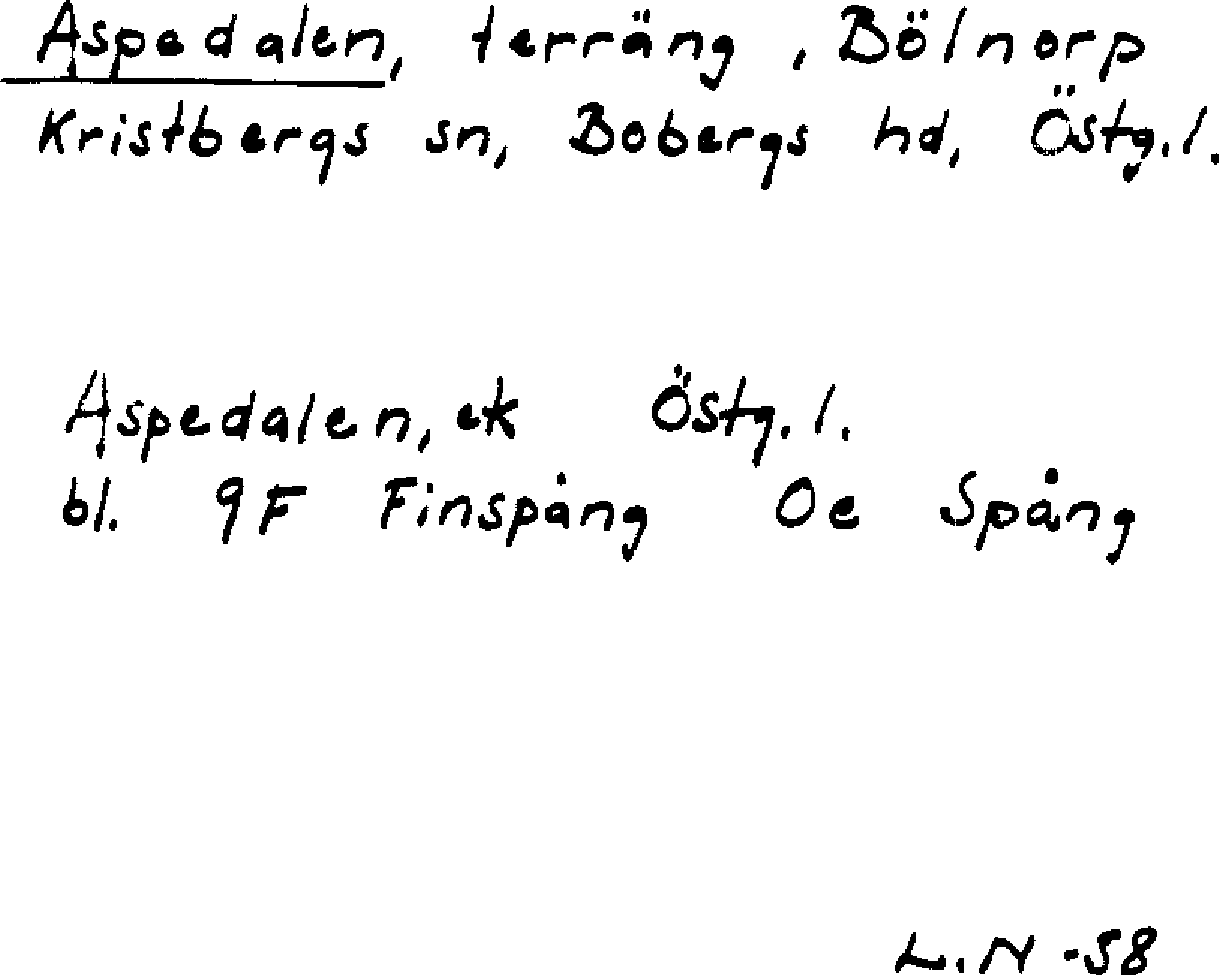 Aspedalen, terräng, Bölnorp
Kristbergs sn, Bobergs hd, Östg.l.
Aspedalen, ek Östg.l.
bl. 9F Finspång 0e Spång
L.N -58